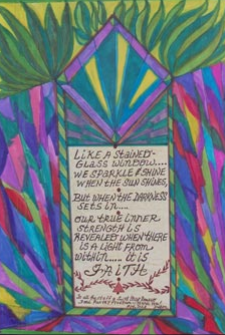 LIKE A STAINED-
GLASS WINDOW....
WE SPARKLE & SHINE
WHEN THE SUN SHINES,
BUT WHEN THE DARKNESS
SETS IN....
OUR TRUE INNER
STRENGTH IS
REVEALED WHEN THERE
IS A LIGHT FROM
WITHIN..... it is
FAITH